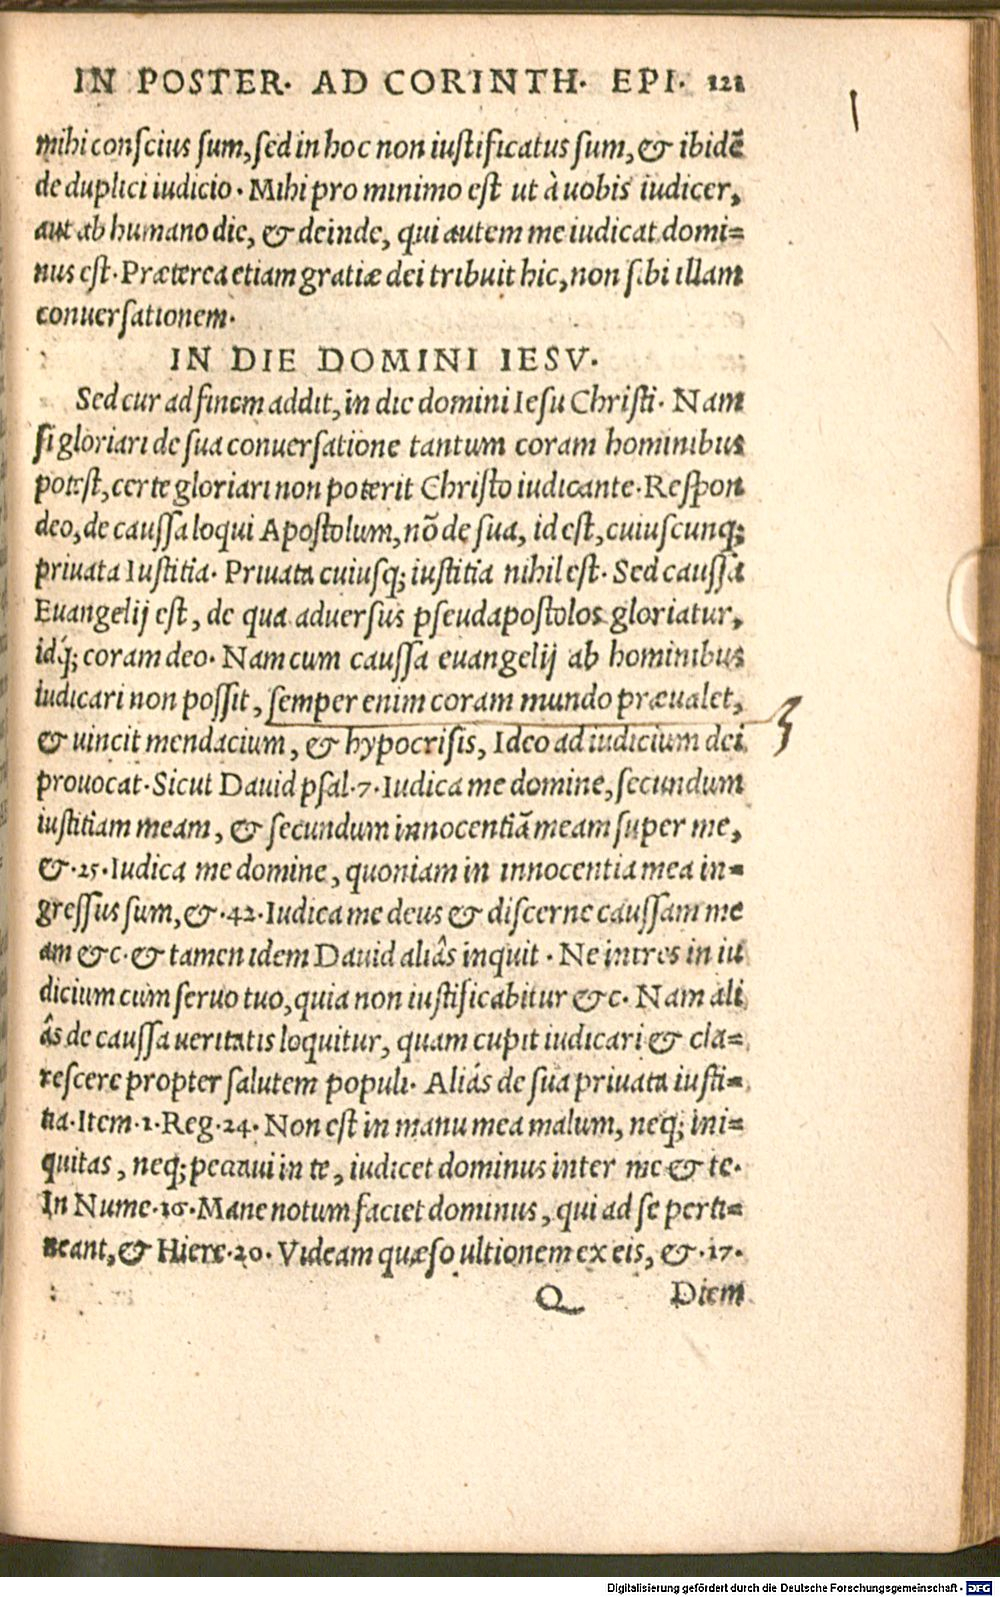 IN POSTER. AD CORINTH. EPI. 121
mihi conscius sum, sed in hoc non iustificatus sum, & ibidē
de duplici iudicio. Mihi pro minimo est ut à uobis iudicer,
aut ab humano die, & deinde, qui autem me iudicat domi=
nus est. Præterea etiam gratiæ dei tribuit hic, non sibi illam
conuersationem.
IN DIE DOMINI IESV.
Sed cur ad finem addit, in die domini Iesu Christi. Nam
si gloriari de sua conuersatione tantum coram hominibus
potest, certe gloriari non poterit Christo iudicante. Respon
deo, de caussa loqui Apostolum, nō de sua, id est, cuiuscunq;
priuata Iustitia. Priuata cuiusq; iustitia nihil est. Sed caussa
Euangelij est, de qua aduersus pseudapostolos gloriatur,
idq́; coram deo. Nam cum caussa euangelij ab hominibus
iudicari non possit, semper enim coram mundo præualet,
& uincit mendacium, & hypocrisis, Ideo ad iudicium dei
prouocat. Sicut Dauid psal.7. Iudica me domine, secundum
iustitiam meam, & secundum innocentiā meam super me,
&.25. Iudica me domine, quoniam in innocentia mea in=
gressus sum, &.42. Iudica me deus & discerne caussam me
am &c. & tamen idem Dauid aliâs inquit. Ne intres in iu
dicium cum seruo tuo, quia non iustificabitur &c. Nam ali
âs de caussa ueritatis loquitur, quam cupit iudicari & cla=
rescere propter salutem populi. Aliâs de sua priuata iusti=
tia. Item.1. Reg.24. Non est in manu mea malum, neq; ini=
quitas, neq; peccaui in te, iudicet dominus inter me & te.
In Nume.16. Mane notum faciet dominus, qui ad se perti=
neant, & Hiere.20. Videam quæso ultionem ex eis, &.17.
Q Diem
Digitalisierung gefördert durch die Deutsche Forschungsgemeinschaft - DFG